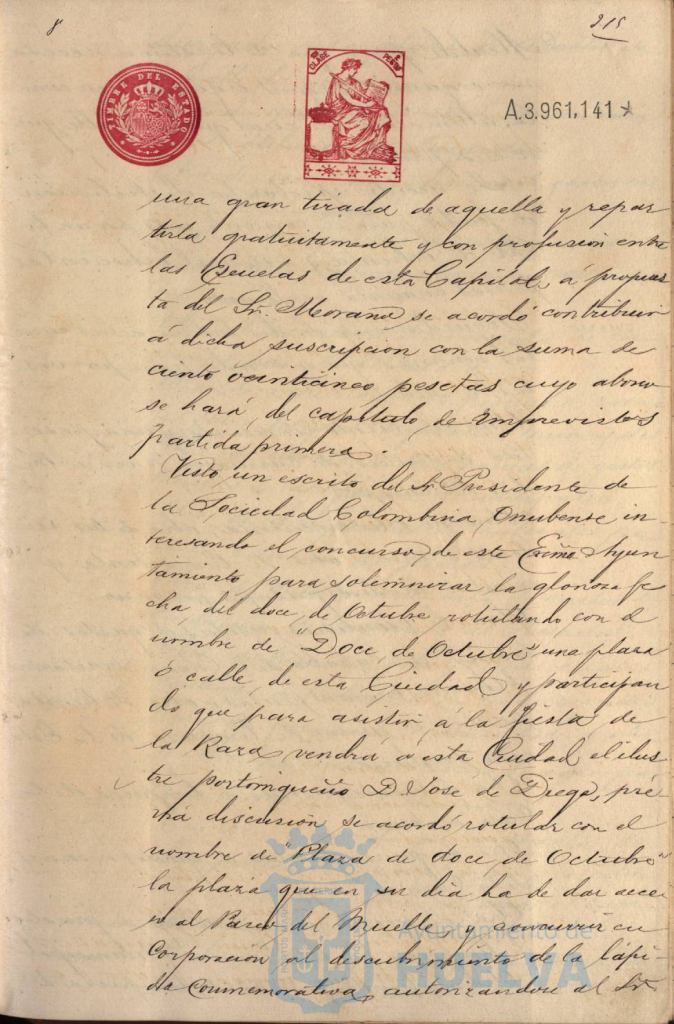 8
215
TIMBRE DEL ESTADO
8ª CLASE
PESETA
A.3.961,141*
una gran tirada de aquella y repar
tirla gratuitamente y con profusion entre
las Escuelas de esta Capital, á propues
ta del Sr. Morano, se acordó contribuir
á dicha suscripcion con la suma de
ciento veinticinco pesetas cuyo abono
se hará del capitulo de Imprevistos
partida primera.
Visto un escrito del Sr. Presidente de
la Sociedad Colombina Onubense in-
teresando el concurso de este Excmo Ayun
tamiento para solemnizar la gloriosa fe
cha del doce de Octubre rotulando con el
nombre de "Doce de Octubre" una plaza
ó calle de esta Ciudad y participan
do que para asistir á la fiesta de
la Raza vendrá á esta Ciudad el ilus
tre portorriqueño D. Jose de Diego, pré
via discusion se acordó rotular con el
nombre de "Plaza de doce de Octubre"
la plaza que en su dia ha de dar acce
so al Paseo del Muelle y concurrir en
Corporacion al descubrimiento de la lápi-
da Conmemorativa, autorizandose al Sr.
Ayuntamiento de
HUELVA